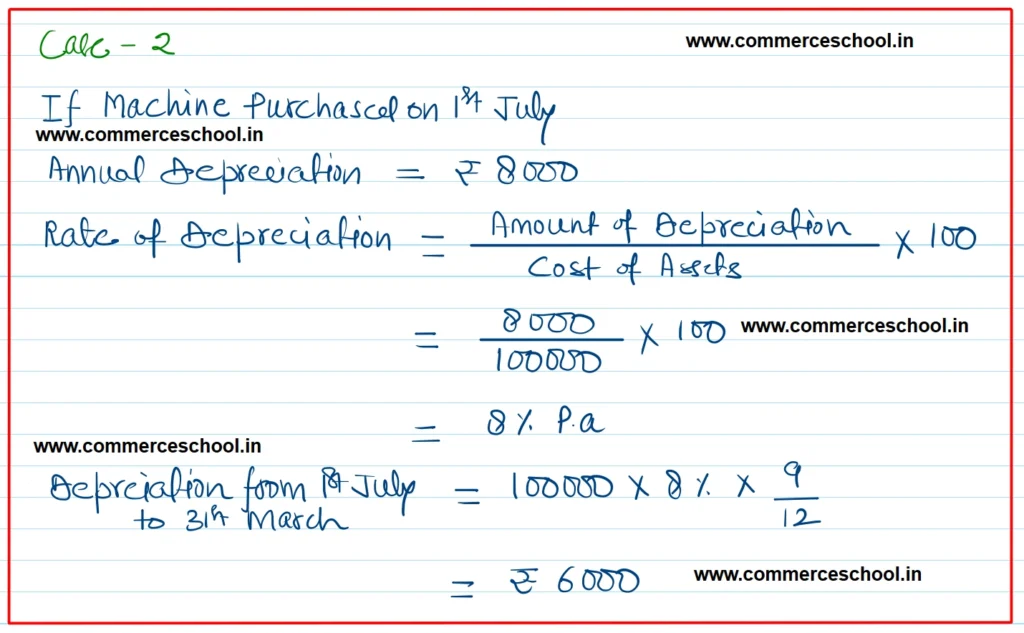 Case - 2
www.commerceschool.in
If Machine Purchased on 1st July
www.commerceschool.in
Annual Depreciation = ₹ 8000
Rate of Depreciation = Amount of Depreciation / Cost of Assets × 100
= 8000 / 100000 × 100
www.commerceschool.in
= 8% P.a
www.commerceschool.in
Depreciation from 1st July = 100000 × 8% × 9 / 12
to 31st March
= ₹ 6000
www.commerceschool.in